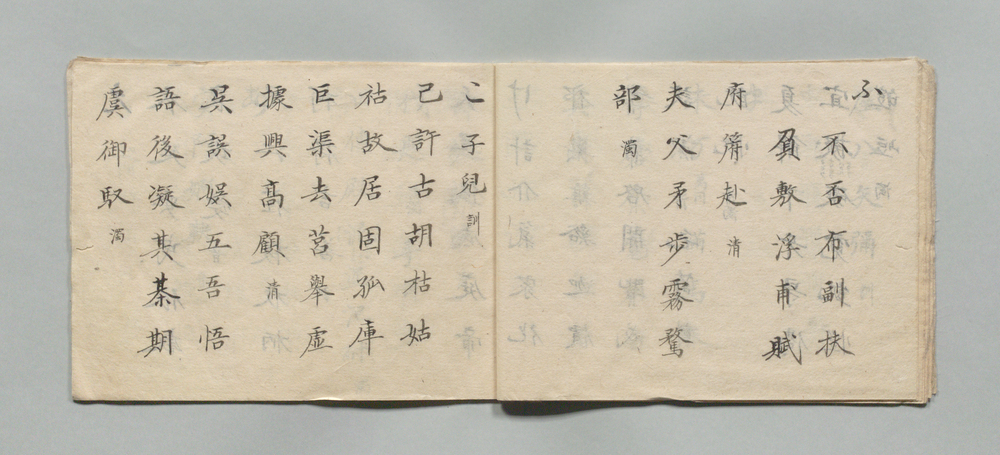 ふ
不否布副扶
負敷浮甫賦
府簿赴 清
夫父矛歩霧鶩
部 濁
こ 子兒 訓
己許古胡枯姑
祜故居固孤庫
巨渠去莒舉虛
據興高顧 清
吳誤娯五吾悟
語後凝其棊期
虞御馭 濁